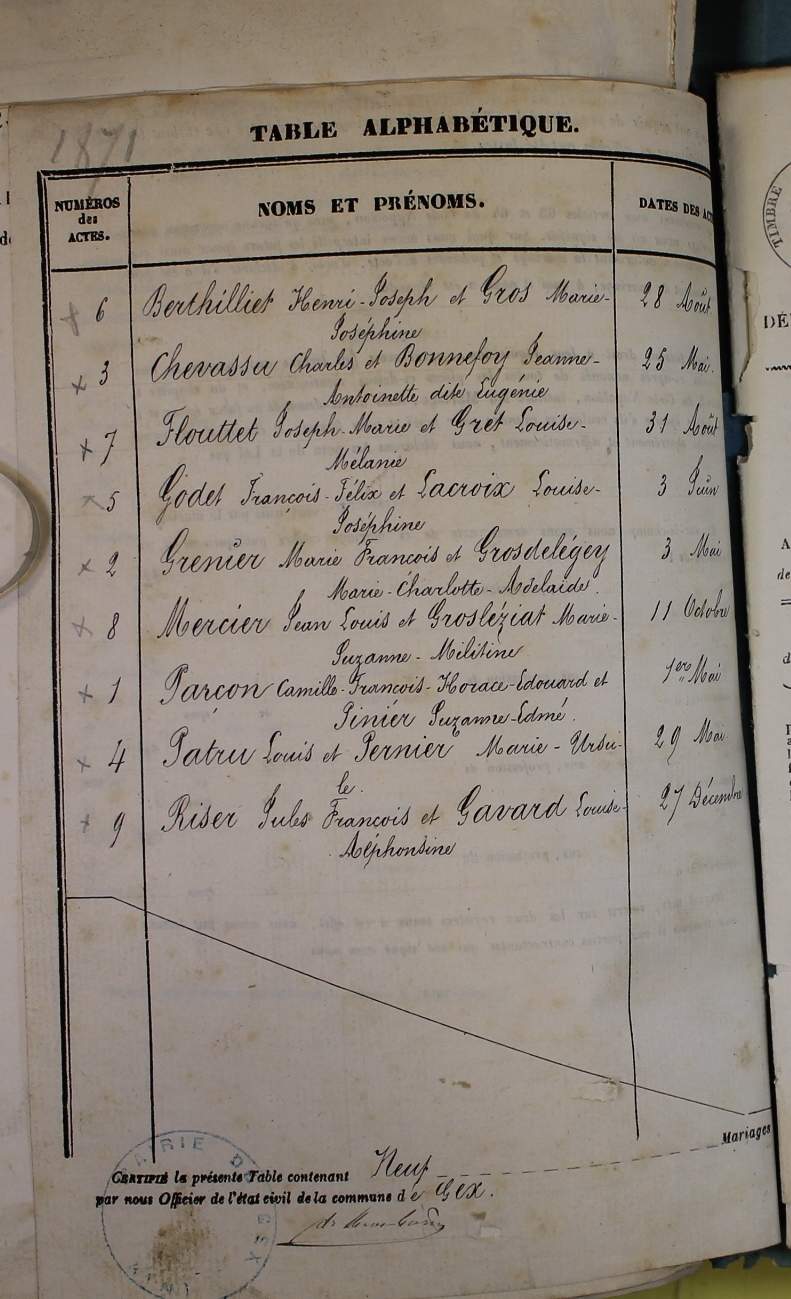 1871
TABLE ALPHABÉTIQUE.
NUMÉROS
des
ACTES.
NOMS ET PRÉNOMS.
DATES DES ACT
x 6 Berthilliet Henri-Joseph et Gros Marie- 28 Août
Joséphine
x 3 Chevassu Charles et Bonnefoy Jeanne- 25 Mai.
Antoinette dite Eugénie
x 7 Flouttet Joseph-Marie et Gret Louise- 31 Août
Mélanie
x 5 Godet François-Félix et Lacroix Louise- 3 Juin
Joséphine
x 2 Grenier Marie François et Grosdelégey 3 Mai
Marie-Charlotte-Adelaïde.
x 8 Mercier Jean Louis et Grosléziat Marie- 11 Octobre
Suzanne-Militine
x 1 Parçon Camille-François-Horace-Edouard et 1ere Mai
Pinier Suzanne-Edmé.
x 4 Patru Louis et Pernier Marie-Ursu- 29 Mai
le.
x 9 Riser Jules François et Gavard Louise- 27 Décembre
Alphonsine
Mariages
CERTIFIÉ la présente Table contenant Neuf
par nous Officier de l'état civil de la commune de Gex.
MAIRIE DE GEX
TIMBRE
DÉ